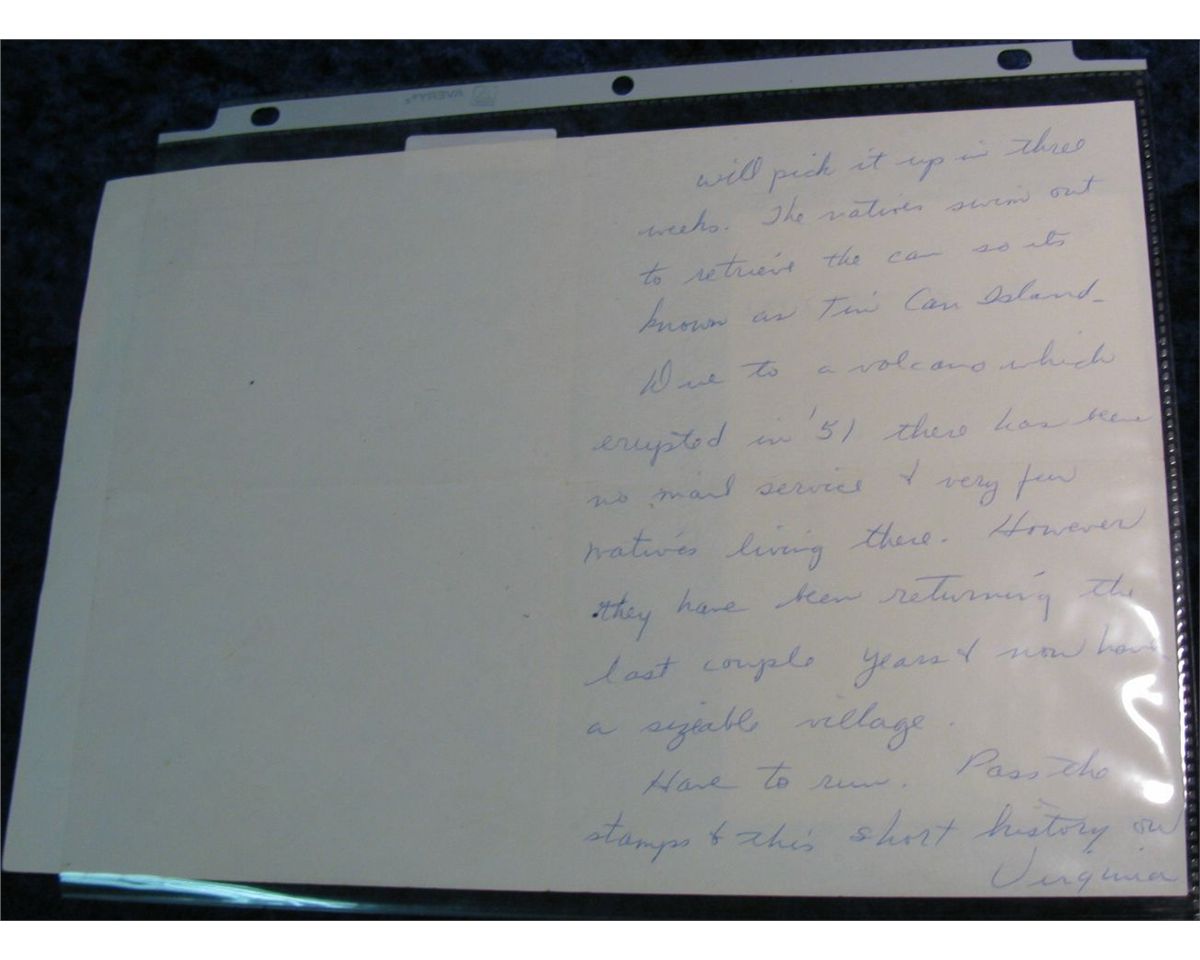 AVERY®
will pick it up in three
weeks. The natives swim out
to retrieve the can so its
known as Tin Can Island_
Due to a volcano which
erupted in '51 there has been
no mail service & very few
natives living there. However
they have been returning the
last couple years & now have
a sizeable village.
Have to run. Pass the
stamps & this short history on
Virginia